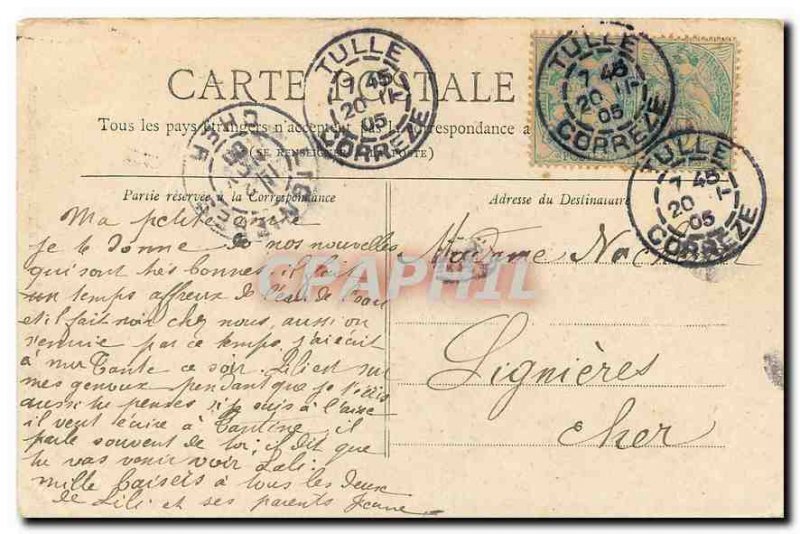 CARTE POSTALE
Tous les pays étrangers n'acceptent pas la correspondance a
(SE RENSEIGNER POSTE)
TULLE
7 45
20
05
CORREZE
TULLE
7 45
20
05
CORREZE
TULLE
7 45
20
05
CORREZE
CHER
Partie réservée à la Correspondance
Adresse du Destinataire
Ma petite
je te donne de nos nouvelles
qui sont très bonnes, il fait
un temps affreux de l'eau de l'eau
et il fait noir chez nous, aussi on
s'ennuie par ce temps j'ai écrit
à ma Tante ce soir. Lili est sur
mes genoux pendant que je t'écris
aussi tu penses si je suis à l'aise
il veut écrire à Tantine, il
parle souvent de toi; il dit que
tu vas venir voir Lali
mille baisers à tous les deux
de Lili et ses parents Jeanne
Madame
Lignières
Cher
CPAPHIL